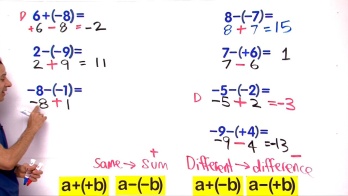 D 6+(-8)=
+6 -8 =-2
2-(-9)=
2 + 9 = 11
-8-(-1)=
-8 + 1
8-(-7)=
8 + 7 =15
7-(+6)= 1
7 - 6
D -5-(-2)=
-5 + 2 =-3
-9-(+4)=
-9 - 4 =-13
Same → sum +
Different → difference -
a+(+b) a-(-b) a+(-b) a-(+b)